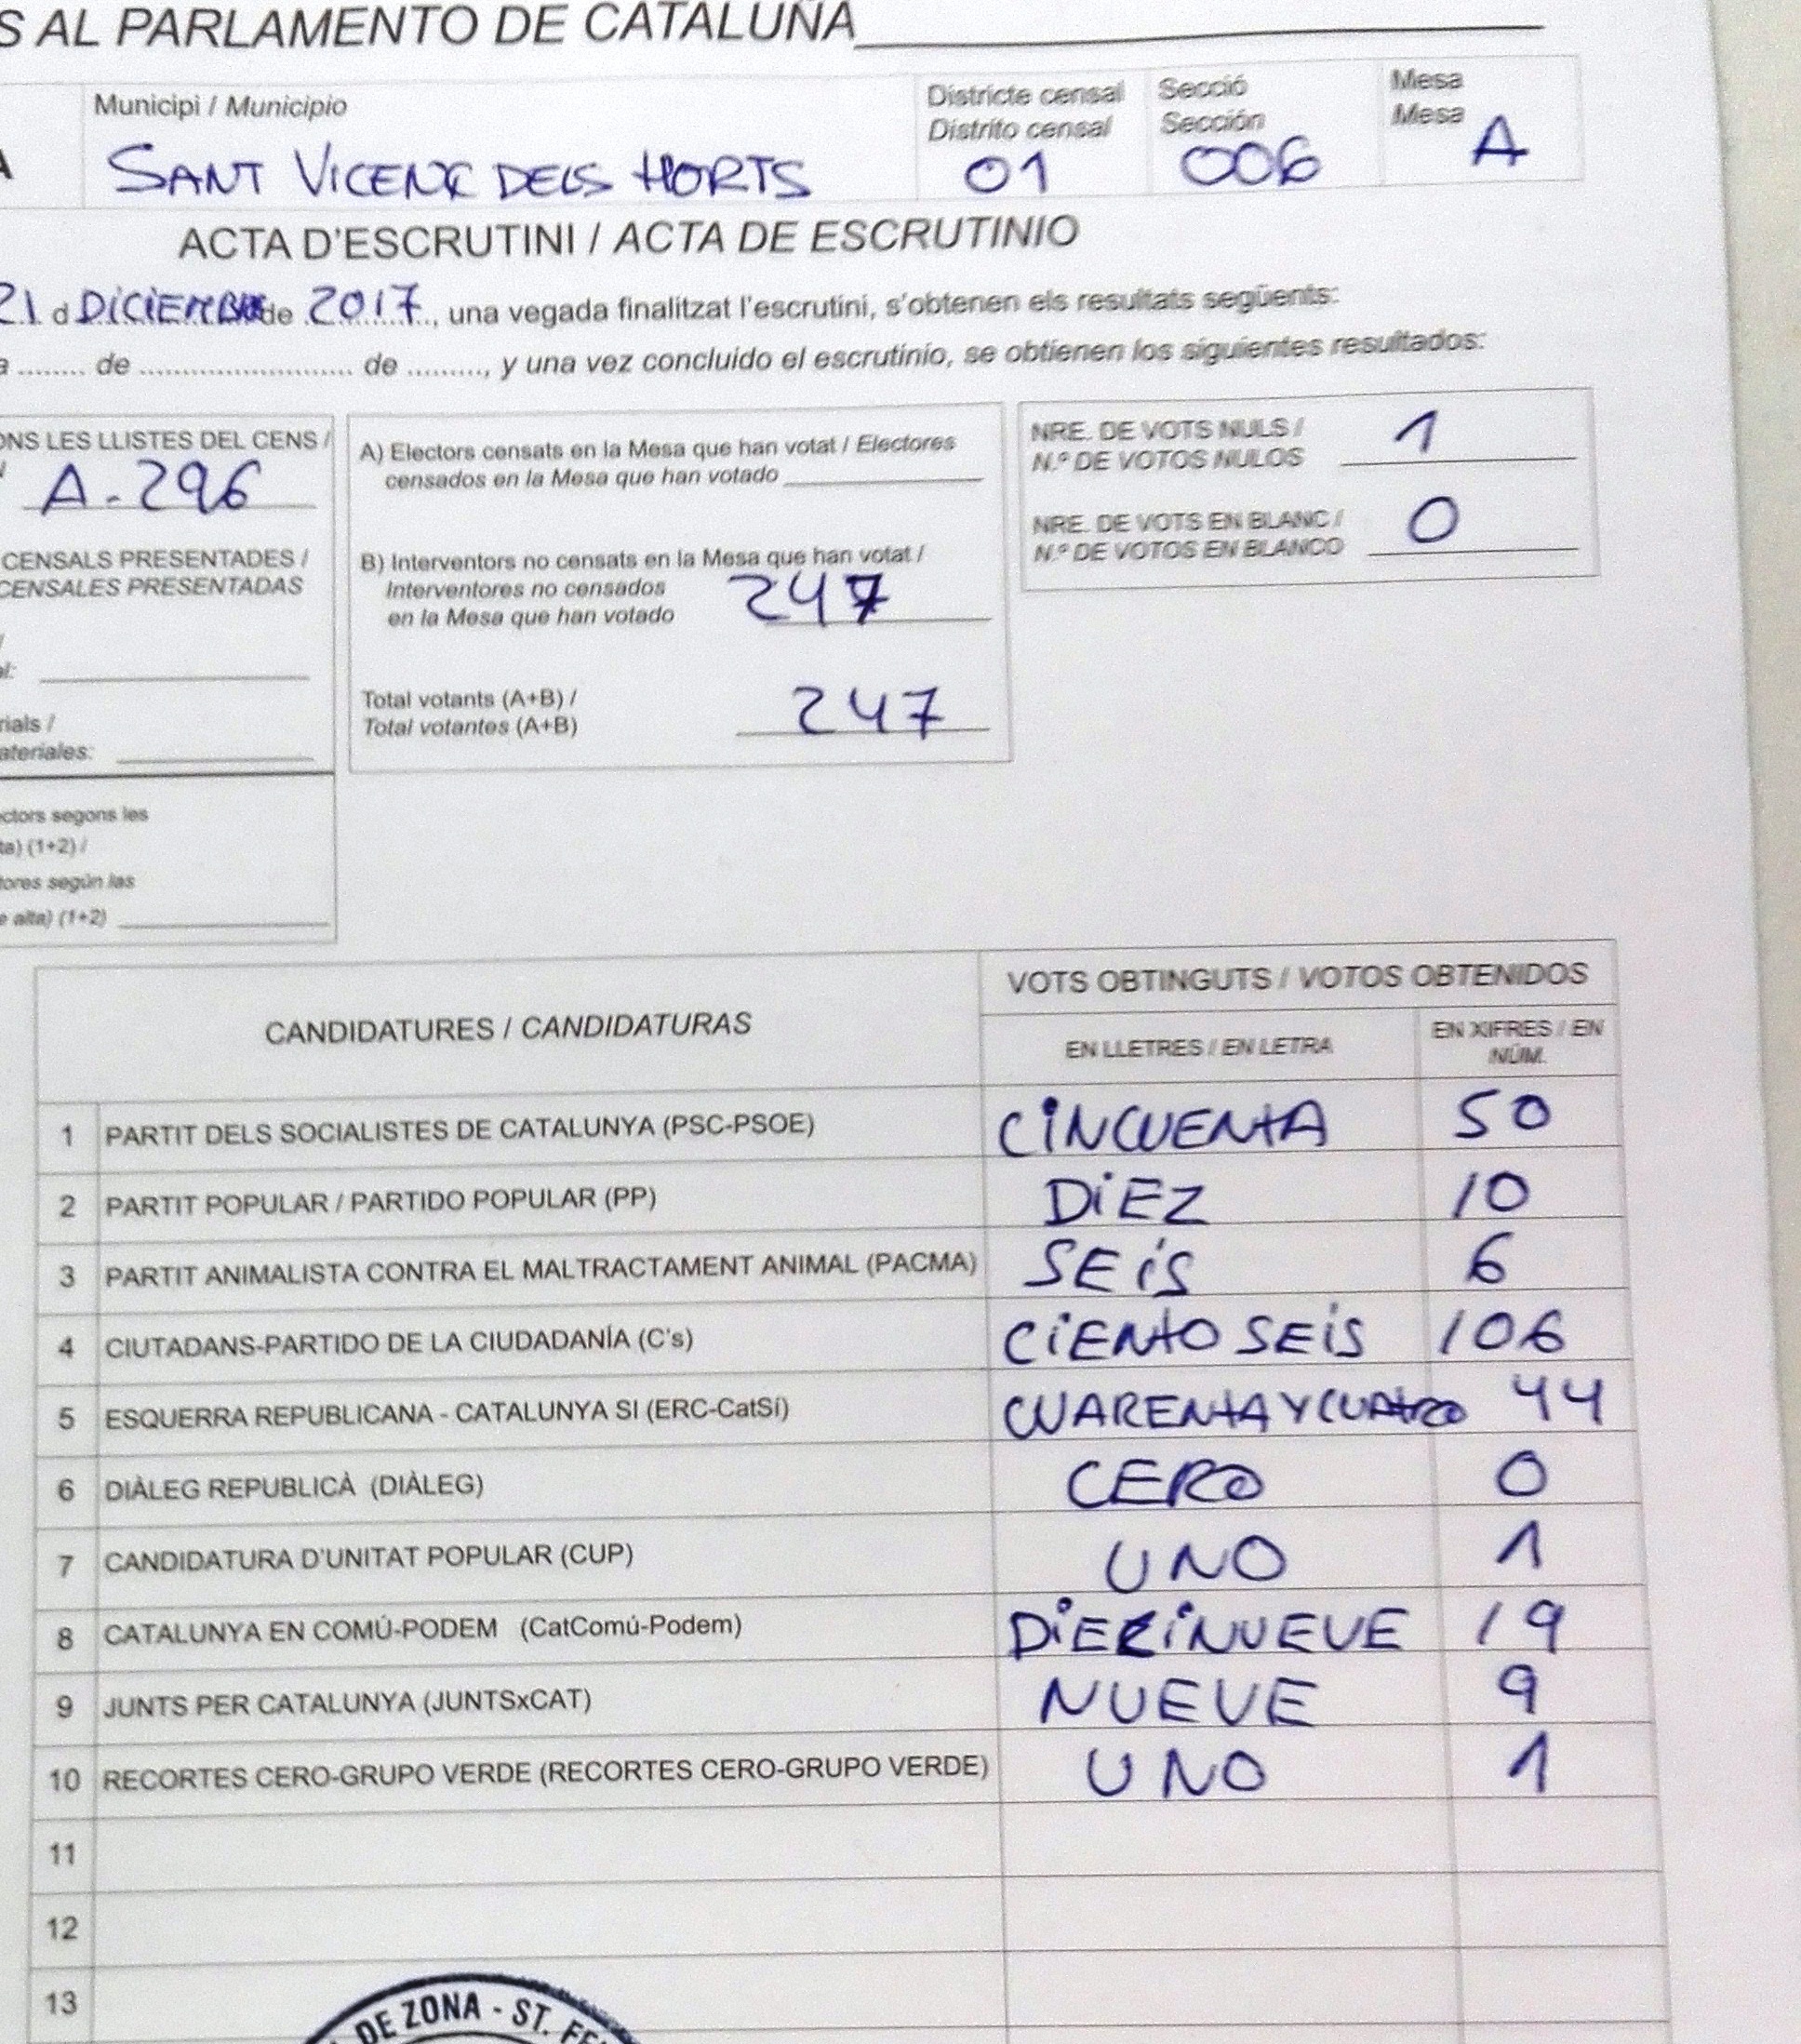 S AL PARLAMENTO DE CATALUÑA
Municipi / Municipio
Districte censal
Distrito censal
Secció
Sección
Mesa
Mesa
SANT VICENÇ DELS HORTS
01
006
A
ACTA D'ESCRUTINI / ACTA DE ESCRUTINIO
21 d DICIEMBRE de 2017, una vegada finalitzat l'escrutini, s'obtenen els resultats següents:
a ........ de ........................ de ........., y una vez concluido el escrutinio, se obtienen los siguientes resultados:
ONS LES LLISTES DEL CENS /
A-296
CENSALS PRESENTADES /
CENSALES PRESENTADAS
/
al:
rials /
ateriales:
ctors segons les
ta) (1+2) /
tores según las
e alta) (1+2)
A) Electors censats en la Mesa que han votat / Electores
censados en la Mesa que han votado
B) Interventors no censats en la Mesa que han votat /
Interventores no censados
en la Mesa que han votado 247
Total votants (A+B) /
Total votantes (A+B) 247
NRE. DE VOTS NULS /
N.º DE VOTOS NULOS 1
NRE. DE VOTS EN BLANC /
N.º DE VOTOS EN BLANCO 0
CANDIDATURES / CANDIDATURAS
VOTS OBTINGUTS / VOTOS OBTENIDOS
EN LLETRES / EN LETRA
EN XIFRES / EN
NÚM.
1 PARTIT DELS SOCIALISTES DE CATALUNYA (PSC-PSOE) CINCUENTA 50
2 PARTIT POPULAR / PARTIDO POPULAR (PP) DIEZ 10
3 PARTIT ANIMALISTA CONTRA EL MALTRACTAMENT ANIMAL (PACMA) SEIS 6
4 CIUTADANS-PARTIDO DE LA CIUDADANÍA (C's) CIENTO SEIS 106
5 ESQUERRA REPUBLICANA - CATALUNYA SI (ERC-CatSí) CUARENTA Y CUATRO 44
6 DIÀLEG REPUBLICÀ (DIÀLEG) CERO 0
7 CANDIDATURA D'UNITAT POPULAR (CUP) UNO 1
8 CATALUNYA EN COMÚ-PODEM (CatComú-Podem) DIECINUEVE 19
9 JUNTS PER CATALUNYA (JUNTSxCAT) NUEVE 9
10 RECORTES CERO-GRUPO VERDE (RECORTES CERO-GRUPO VERDE) UNO 1
11
12
13
DE ZONA - ST. FE